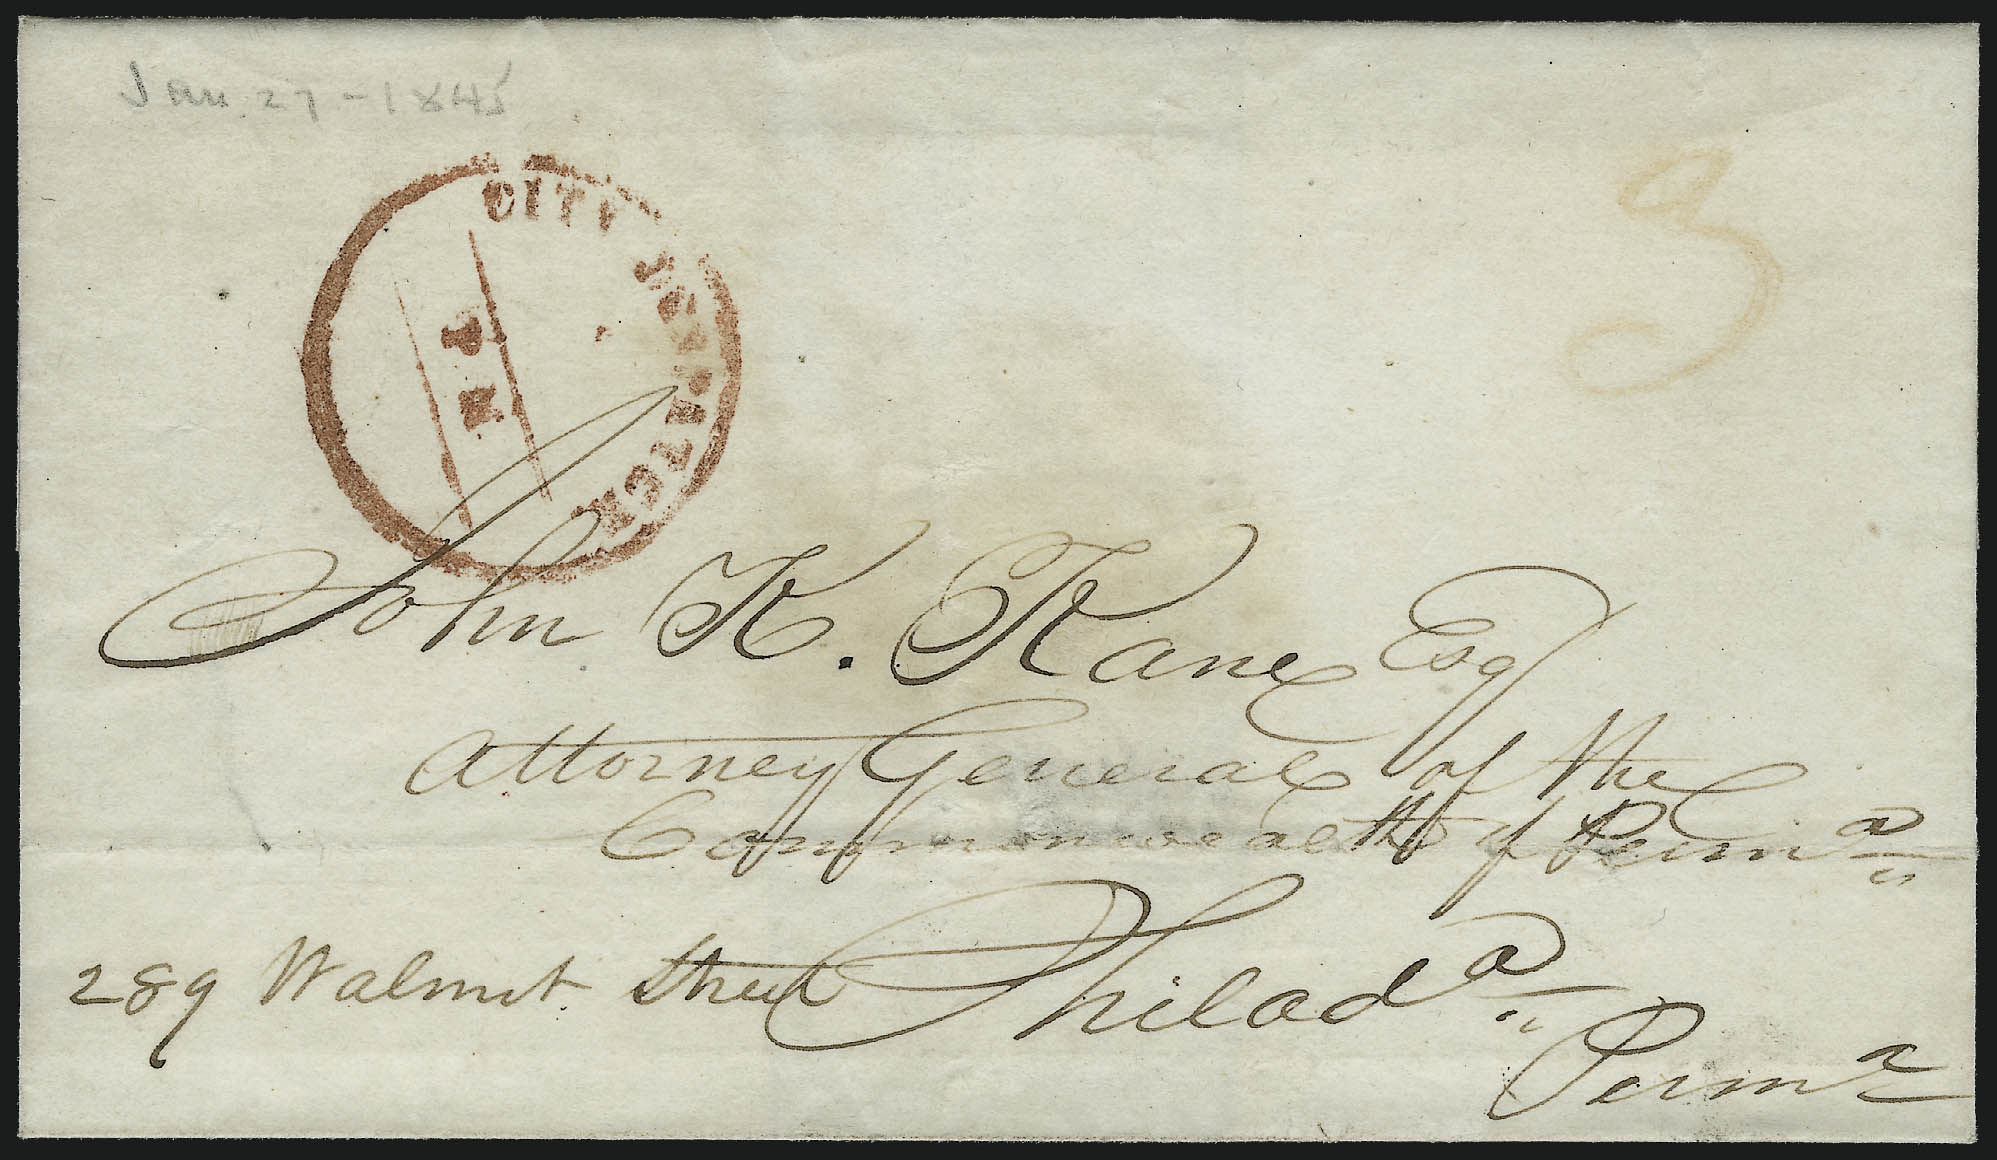 Jan 27 - 1845
CITY DESPATCH
3
John K. Kane Esq
Attorney General of the
Commonwealth of Penna
289 Walnut Street Philada
Penna